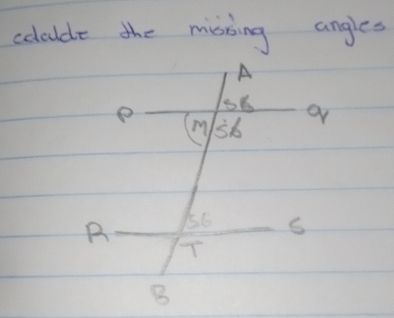 calculate the missing angles
A
P 56 q
M 56
56
R S
T
B